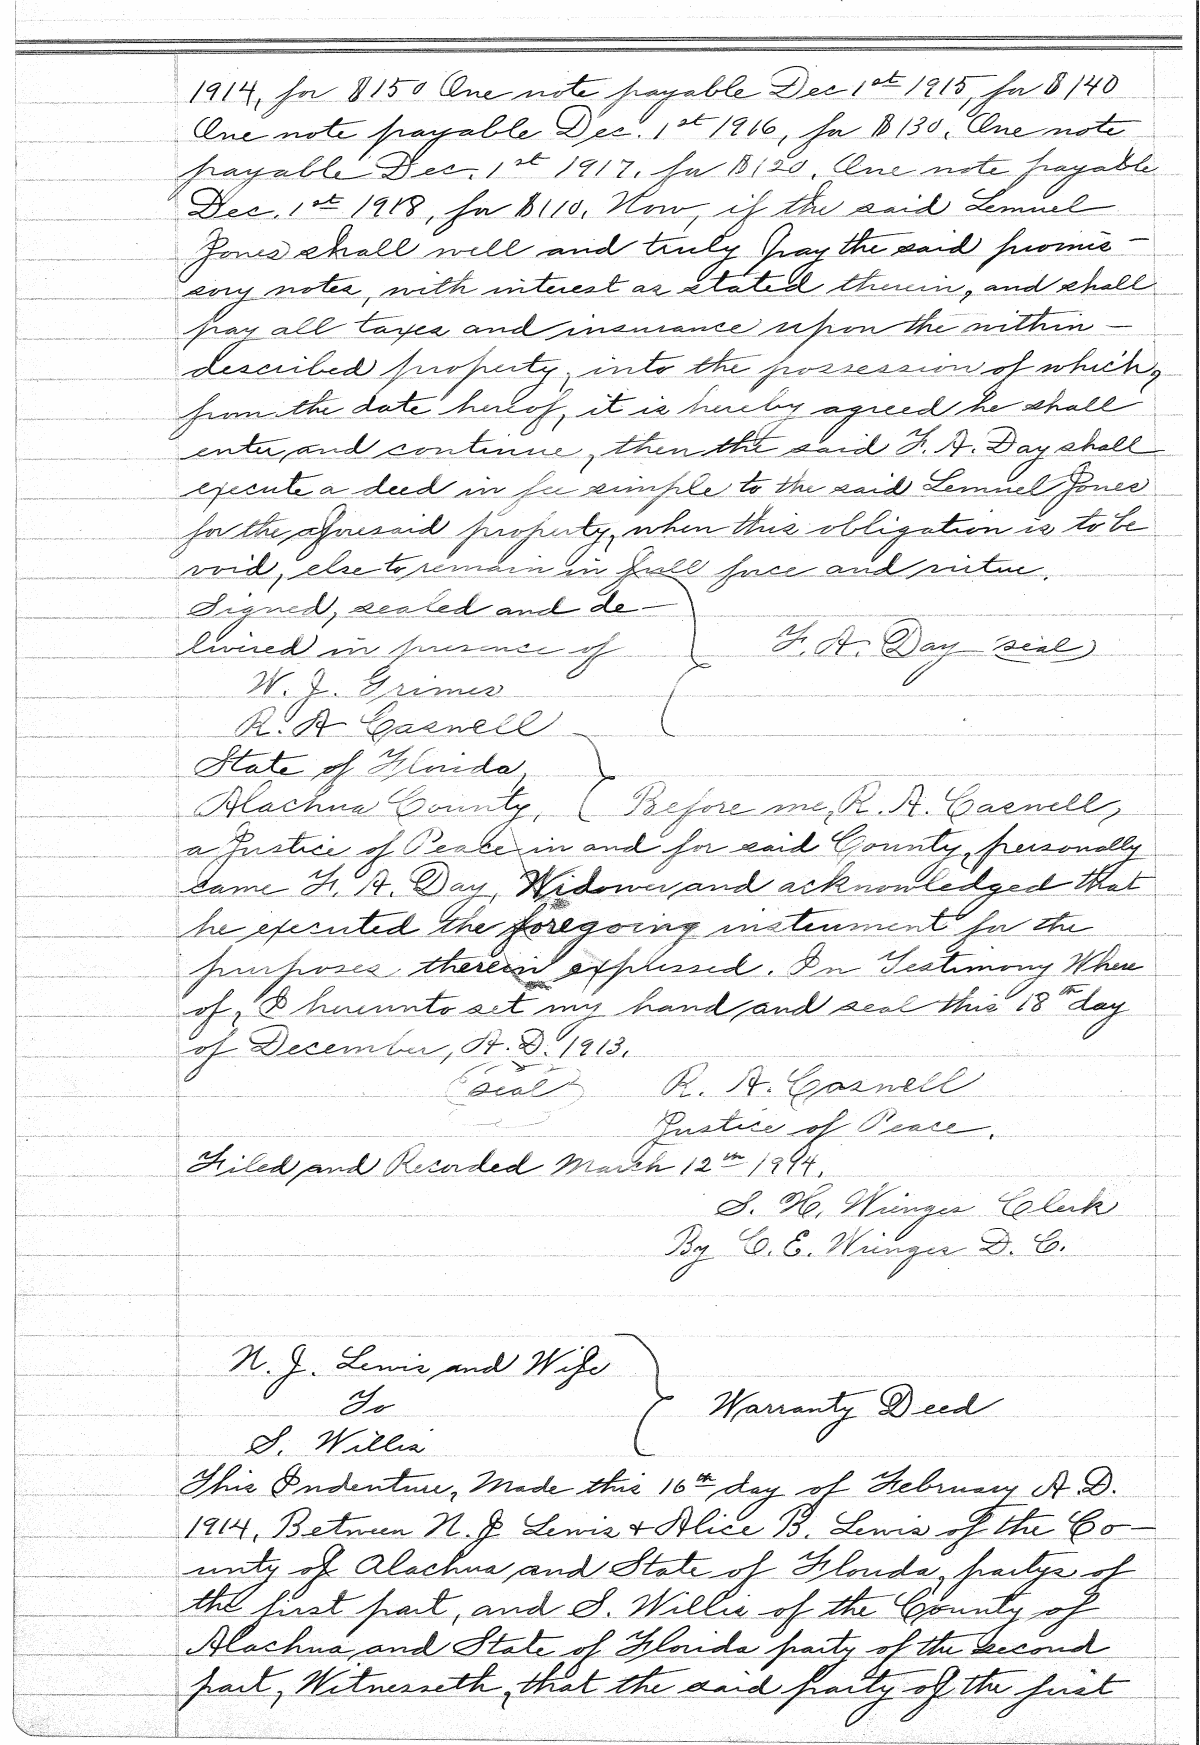 1914, for $150 One note payable Dec 1st 1915, for $140
One note payable Dec. 1st 1916, for $130. One note
payable Dec. 1st 1917. for $120. One note payable
Dec. 1st 1918, for $110. Now, if the said Lemuel
Jones shall well and truly pay the said promis-
sory notes, with interest as stated therein, and shall
pay all taxes and insurance upon the within-
described property, into the possession of which,
from the date hereof, it is hereby agreed he shall
enter and continue, then the said F. A. Day shall
execute a deed in fee simple to the said Lemuel Jones
for the aforesaid property, when this obligation is to be
void, else to remain in full force and virtue.
Signed, sealed and de-
livered in presence of
F. A. Day (seal)
W. J. Grimes
R. A Caswell
State of Florida,
Alachua County, Before me, R. A. Caswell,
a Justice of Peace in and for said County, personally
came F. A. Day, Widower, and acknowledged that
he executed the foregoing instrument for the
purposes therein expressed. In Testimony Where
of, I hereunto set my hand and seal this 18th day
of December, A. D. 1913.
(seal) R. A. Caswell
Justice of Peace.
Filed and Recorded March 12th 1914.
S. H. Wienges Clerk
By C. E. Wienges D. C.
N. J. Lewis and Wife
To
Warranty Deed
S. Willis
This Indenture, Made this 16th day of February A. D.
1914, Between N. J Lewis & Alice B. Lewis of the Co-
unty of Alachua and State of Florida, partys of
the first part, and S. Willis of the County of
Alachua, and State of Florida party of the second
part, Witnesseth, that the said party of the first